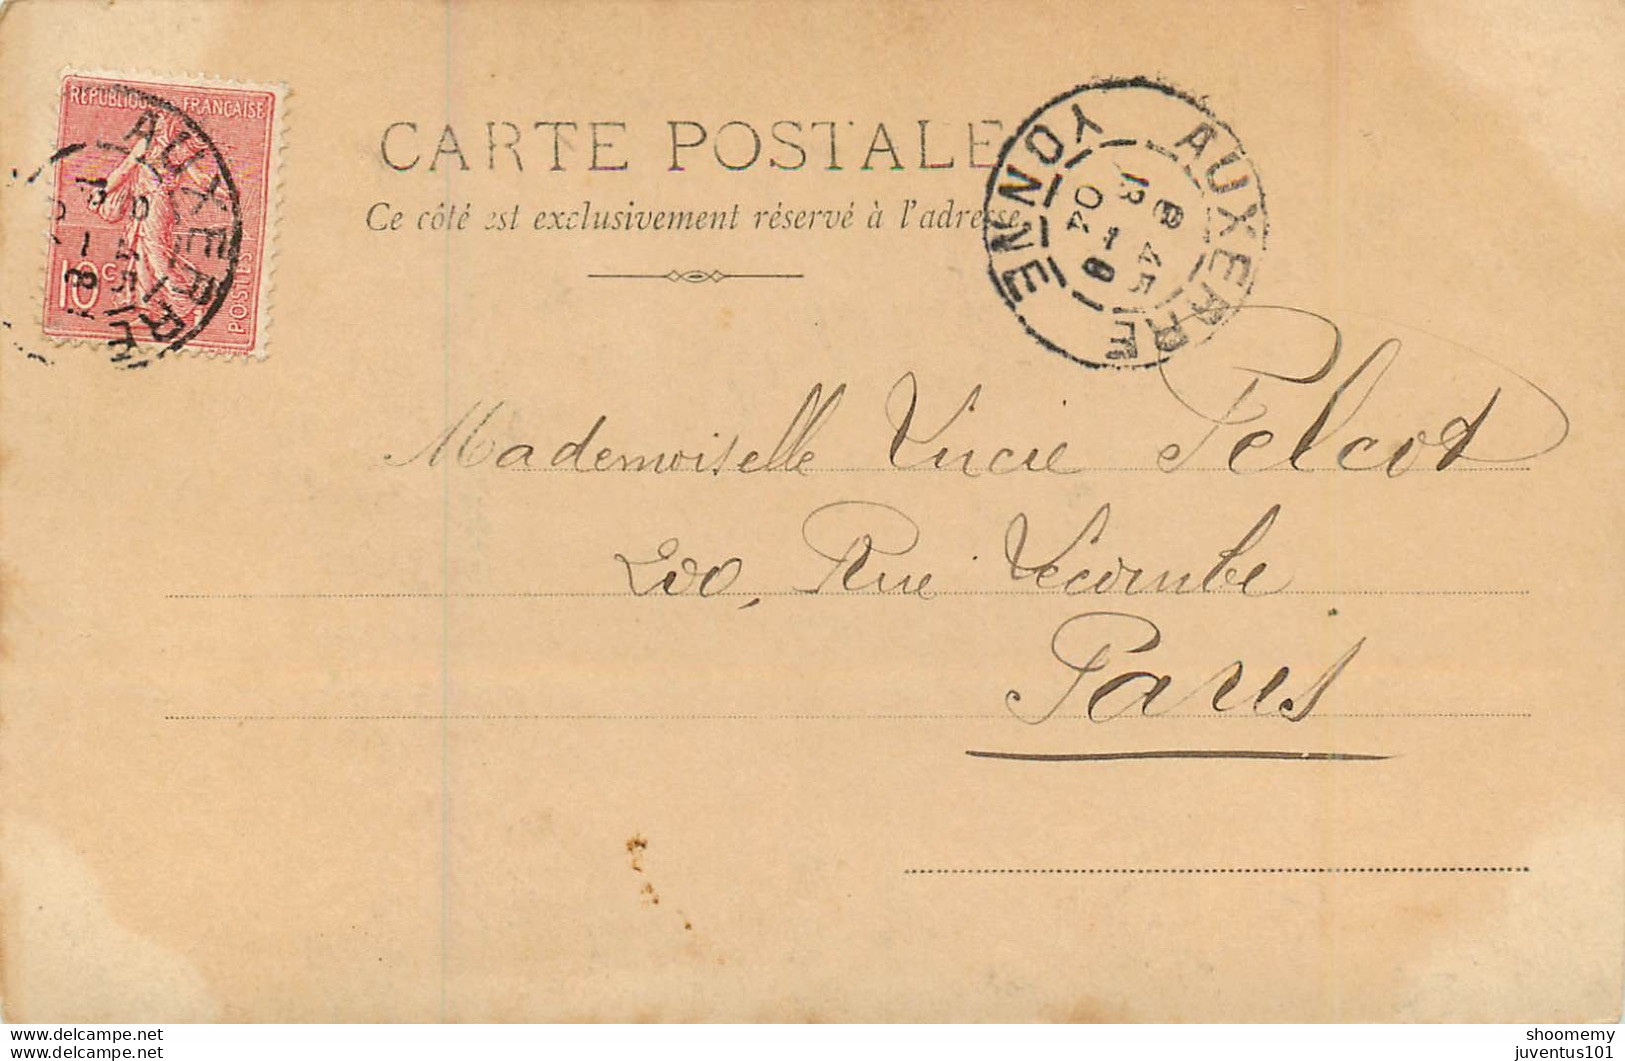 RÉPUBLIQUE FRANÇAISE
10c
POSTES
AUXERRE
CARTE POSTALE
Ce côté est exclusivement réservé à l'adresse
AUXERRE
YONNE
8 45
8 1
04
Mademoiselle Lucie Pelcot
200, Rue Lecourbe
Paris
www.delcampe.net
shoomemy
juventus101